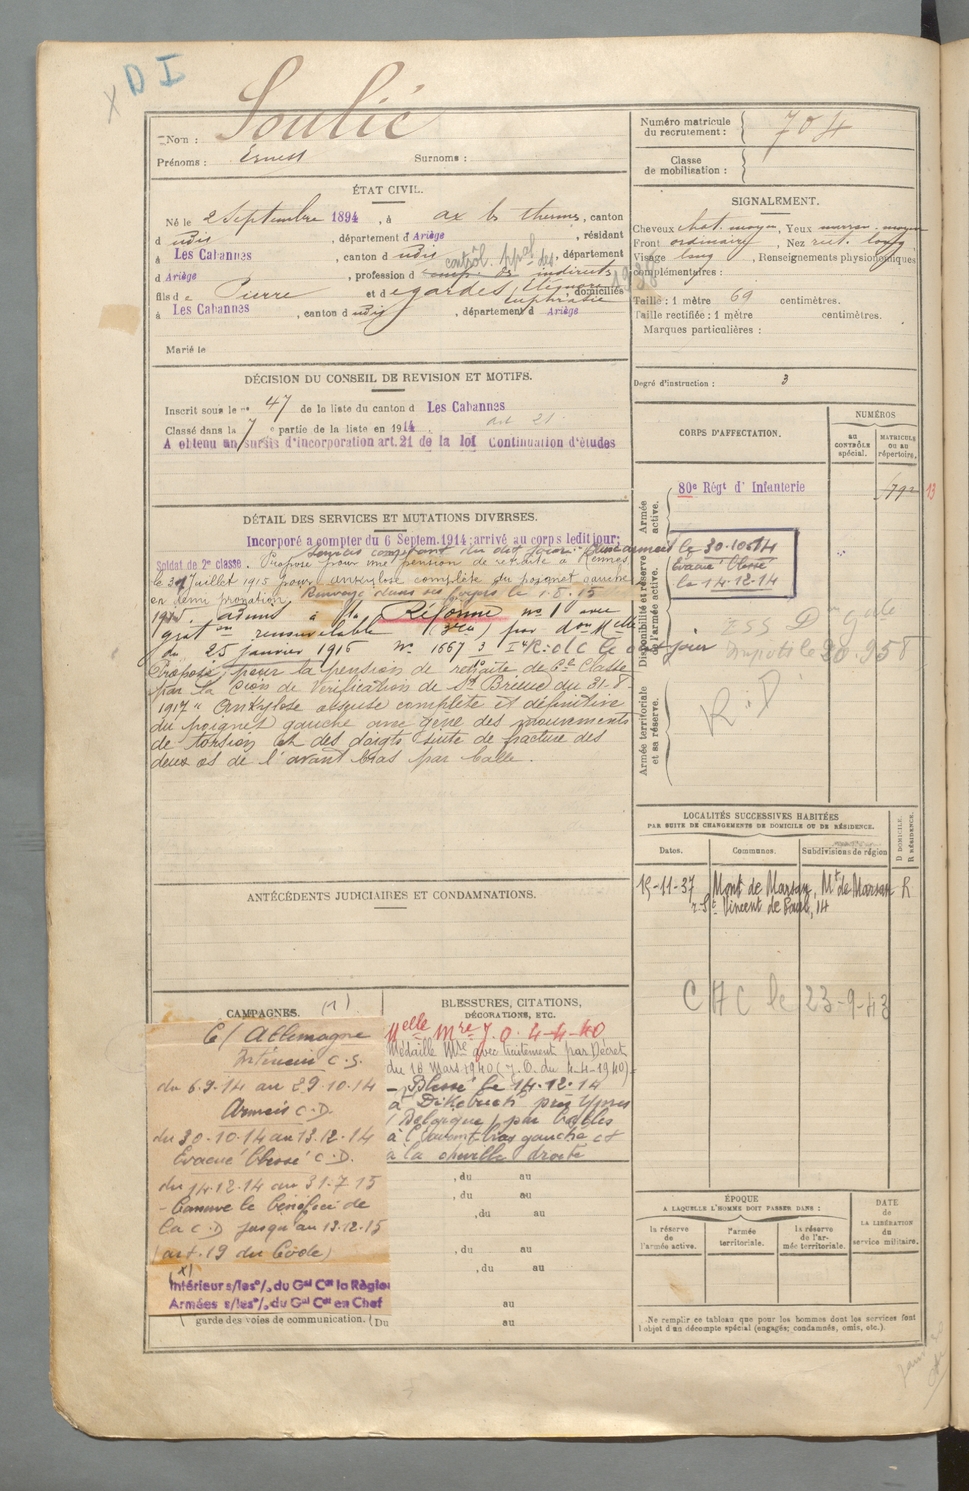 X D I
Nom : Soulié
Prénoms : Ernest Surnoms :
Numéro matricule du recrutement : 704
Classe de mobilisation :
ÉTAT CIVIL.
Né le 2 Septembre 1894, à ax les thermes, canton
d udis, département d Ariège, résident
à Les Cabannes, canton d udis, département
contrôl. ppal des
d Ariège, profession d indirects
1938
fils de Pierre et d egardes, Eléonore domiciliés
Euphrasie
à Les Cabannes, canton d udis, département d Ariège
Marié le
SIGNALEMENT.
Cheveux chat. moyen, Yeux marron. moyen
Front ordinaire, Nez rect. long
Visage long, Renseignements physionomiques
complémentaires :
Taille : 1 mètre 69 centimètres.
Taille rectifiée : 1 mètre centimètres.
Marques particulières :
Degré d'instruction : 3
DÉCISION DU CONSEIL DE REVISION ET MOTIFS.
Inscrit sous le n° 47 de la liste du canton d Les Cabannes
Classé dans la 7 e partie de la liste en 1914. art 21
A obtenu un sursis d'incorporation art. 21 de la loi Continuation d'études
CORPS D'AFFECTATION.
NUMÉROS
au CONTRÔLE spécial.
MATRICULE ou au répertoire.
Armée active.
80e Régt d' Infanterie
13
Disponibilité et réserve de l'armée active.
le 30.10.14
Evacué blessé
le 14.12.14
Armée territoriale et sa réserve.
R. D.
DÉTAIL DES SERVICES ET MUTATIONS DIVERSES.
Incorporé a compter du 6 Septem. 1914; arrivé au corps ledit jour;
Services comptant du dit jour. Aux armées
Soldat de 2e classe. Proposé pour une pension de retraite à Rennes
le 31 Juillet 1915 pour ankylose complète du poignet gauche
en demi pronation. Renvoyé dans ses foyers le 1.8.15
1915. Admis à la Réforme n° 1 avec
grat on renouvelable (3e) par don Melle
du 25 janvier 1916 N° 1667
Proposé pour la pension de retraite de 6e Classe
par la Cion de Vérification de St Brieuc du 31-8-
1917 " Ankylose obtuse complète et définitive
du poignet gauche avec gêne des mouvements
de torsion et des doigts suite de fracture des
deux os de l'avant bras par balle.
LOCALITÉS SUCCESSIVES HABITÉES
PAR SUITE DE CHANGEMENTS DE DOMICILE OU DE RÉSIDENCE.
Dates. Communes. Subdivisions de région
D DOMICILE. R RÉSIDENCE.
15-11-37 Mont de Marsan, Mt de Marsan R
r. St Vincent de Paul, 14
C A C le 23-9-43
ANTÉCÉDENTS JUDICIAIRES ET CONDAMNATIONS.
CAMPAGNES. (1)
C/ Allemagne
Intérieur C.S.
du 6.9.14 au 29.10.14
Armées C.D.
du 30.10.14 au 13.12.14
Evacué blessé C.D.
du 14.12.14 au 31.7.15
- Conserve le bénéfice de
la C.D jusqu'au 13.12.15
(art. 19 du Code)
(x)
Intérieur s/les o/ du Gal Ct la Région
Armées s/les o/ du Gal Ct en Chef
garde des voies de communication. (Du
BLESSURES, CITATIONS,
DÉCORATIONS, ETC.
Melle Mre J.O. 4-4-40
Médaille Mre avec traitement par Décret
du 18 Mars 1940 (J.O. du 4-4-1940)
- Blessé le 14.12.14
à Dikebuch près Ypres
(Belgique) par balles
à l'avant-bras gauche et
à la cheville droite
, du au
, du au
, du au
, du au
, du au
au
au
ÉPOQUE
A LAQUELLE L'HOMME DOIT PASSER DANS :
la réserve de l'armée active.
l'armée territoriale.
la réserve de l'armée territoriale.
DATE de LA LIBÉRATION du service militaire.
Ne remplir ce tableau que pour les hommes dont les services font
l'objet d'un décompte spécial (engagés; condamnés, omis, etc.).